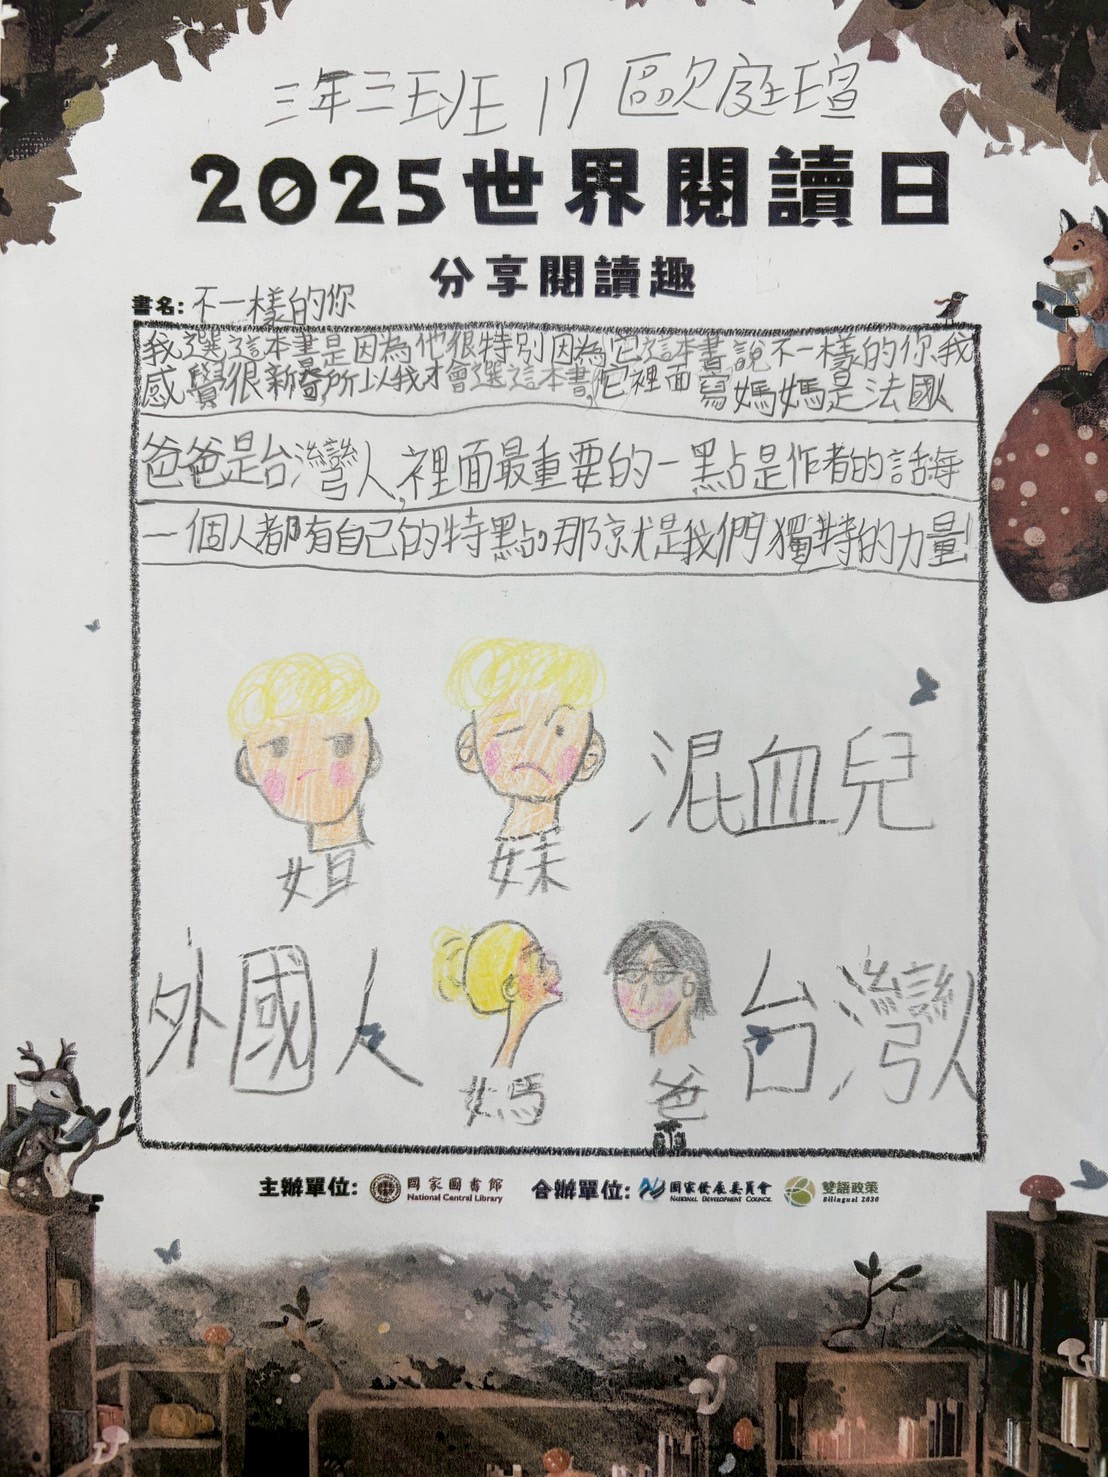 三年三班 17 歐庭瑄
2025世界閱讀日
分享閱讀趣
書名: 不一樣的你
我選這本書是因為他很特別因為它這本書說不一樣的你、我
感覺很新奇所以我才會選這本書,它裡面寫媽媽是法國人
爸爸是台灣人,裡面最重要的一點是作者的話每
一個人都有自己的特點。那就是我們獨特的力量!
混血兒
姐
妹
外國人
台灣人
媽
爸
主辦單位: 國家圖書館 National Central Library 合辦單位: 國家發展委員會 NATIONAL DEVELOPMENT COUNCIL 雙語政策 Bilingual 2030